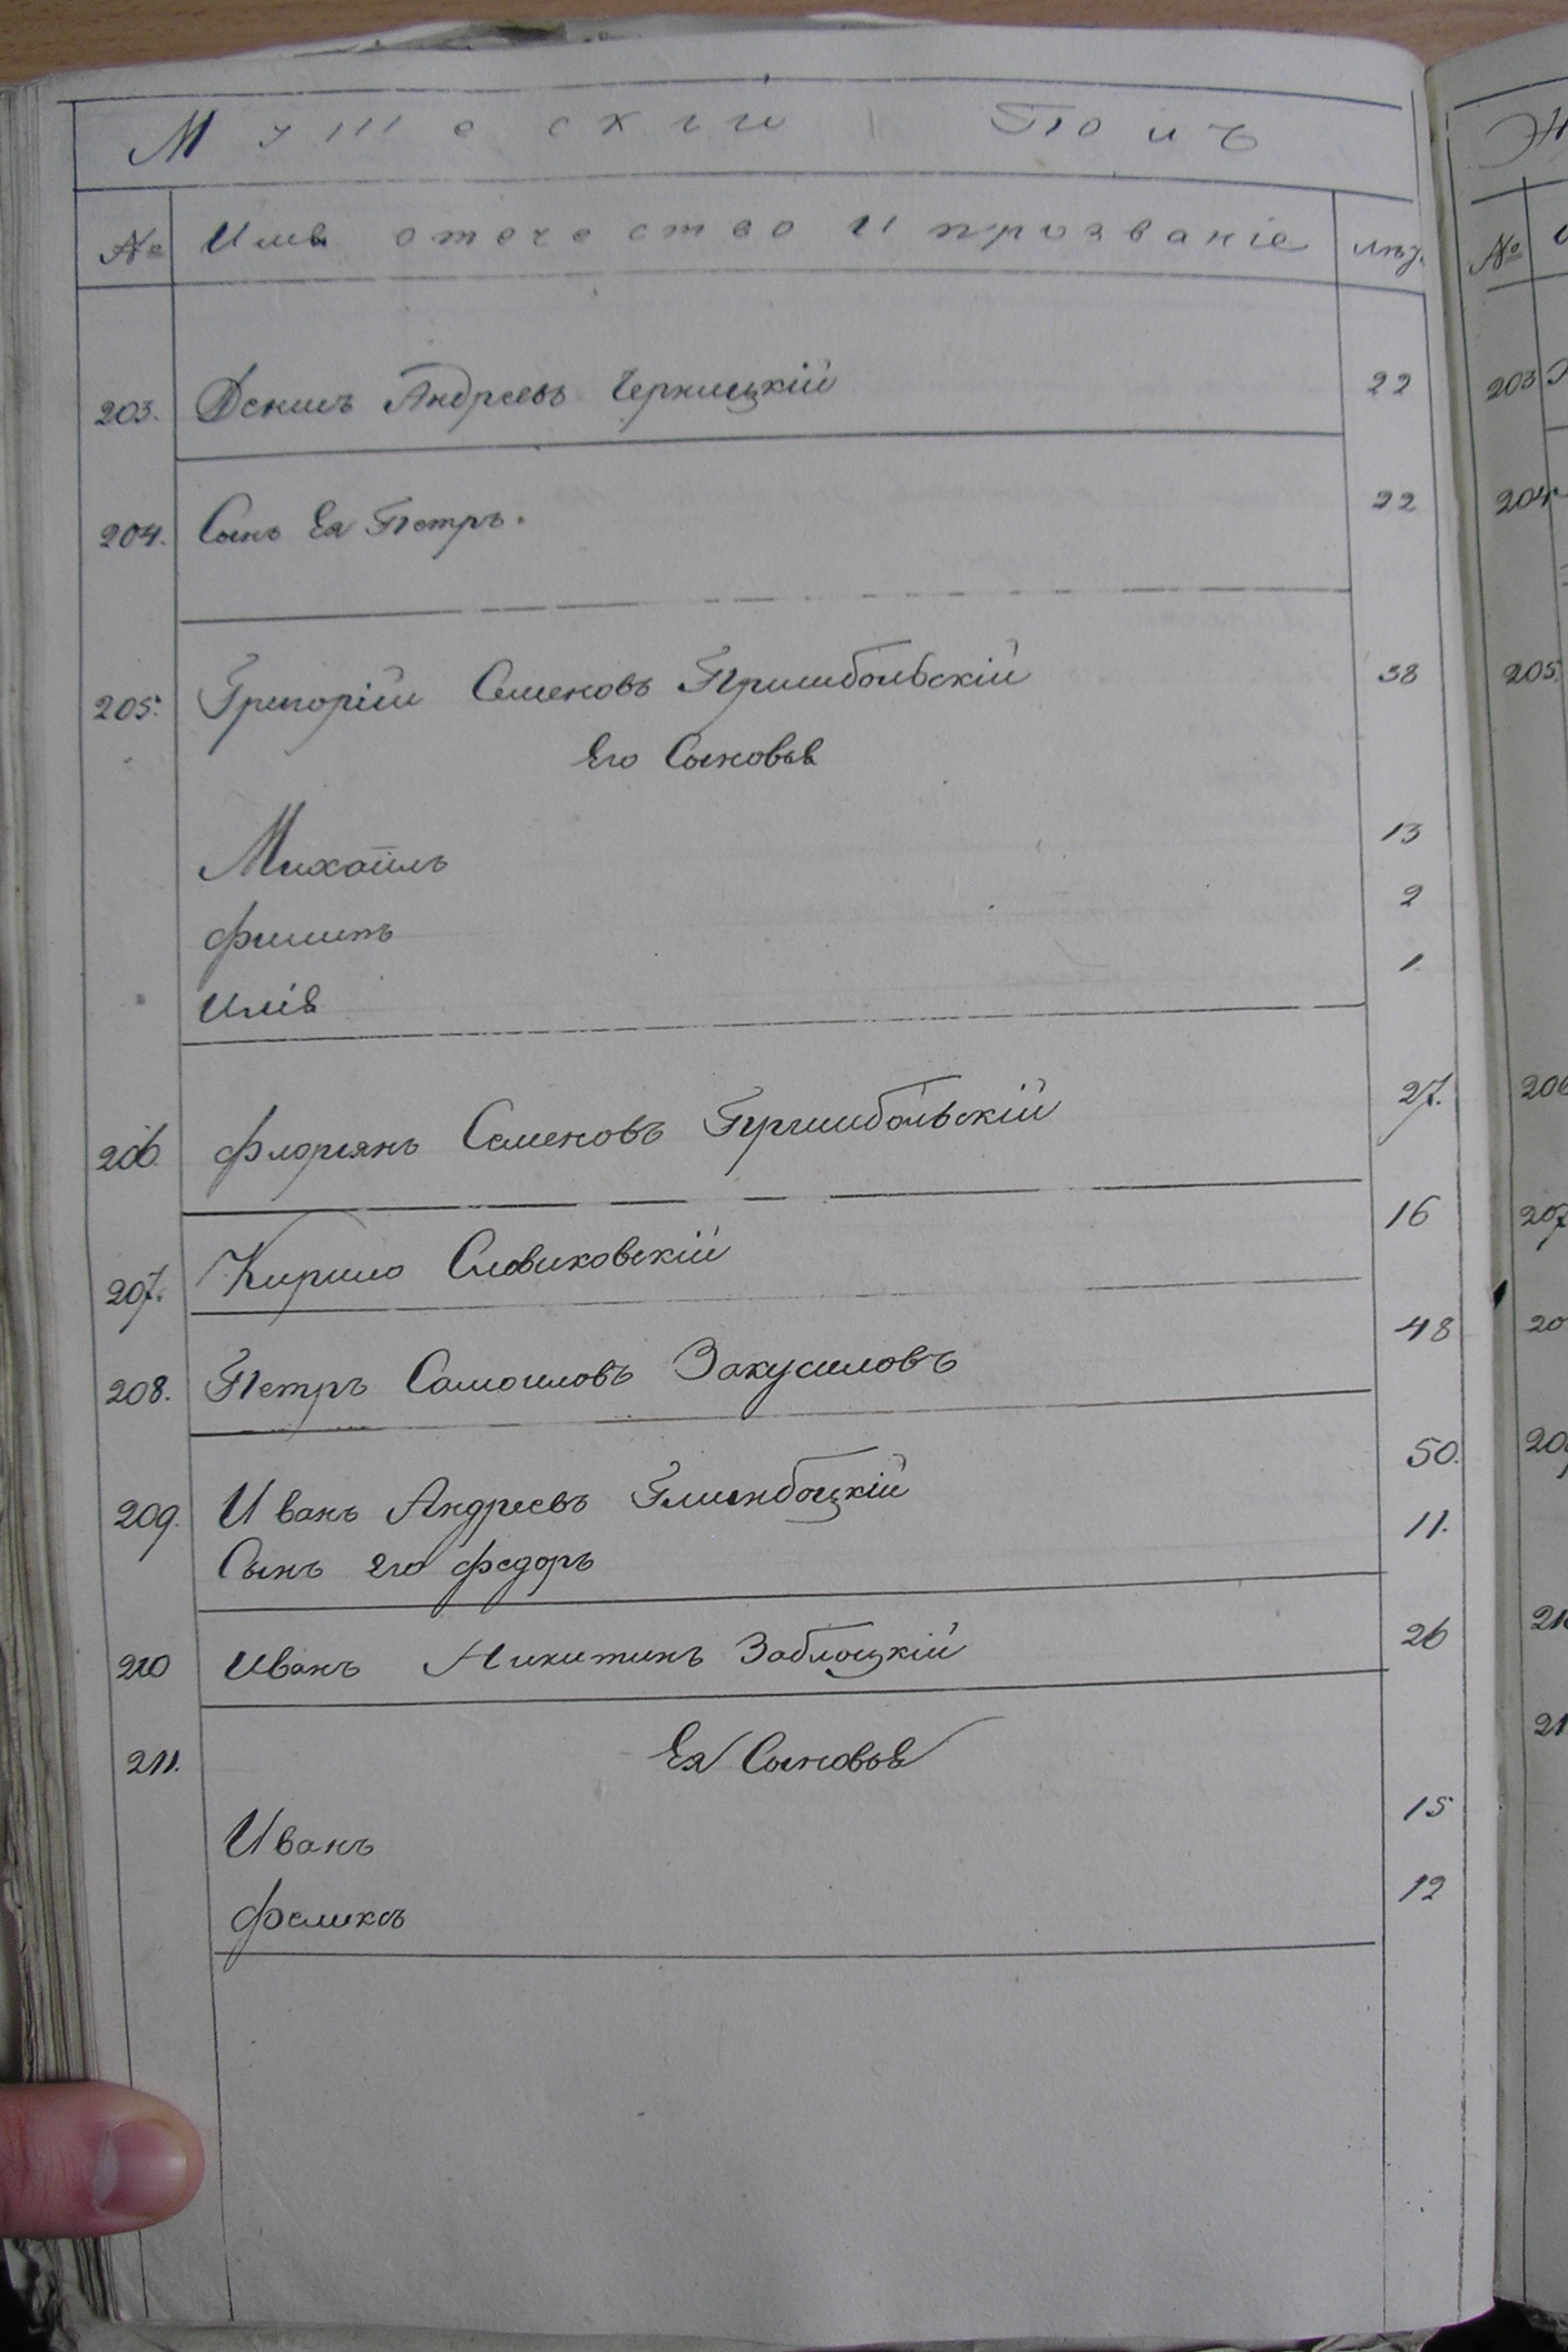 Мужескій Полъ
№ Имя отечество и прозваніе лѣт.
203. Денисъ Андреевъ Черницкій 22
204. Сынъ Ея Петръ. 22
205. Григорій Семеновъ Пршибольскій 38
Его Сыновья
Михаилъ 13
Филипъ 2
Илія 1
206. Флоріянъ Семеновъ Пршибольскій 27.
207. Кирило Словиковскій 16
208. Петръ Самоиловъ Закусиловъ 48
209. Иванъ Андреевъ Глинбоцкій 50.
Сынъ его Федоръ 11.
210 Иванъ Никитинъ Заблоцкій 26
211. Ея Сыновья
Иванъ 15
Феликсъ 12
№
203
204
205.
206
207